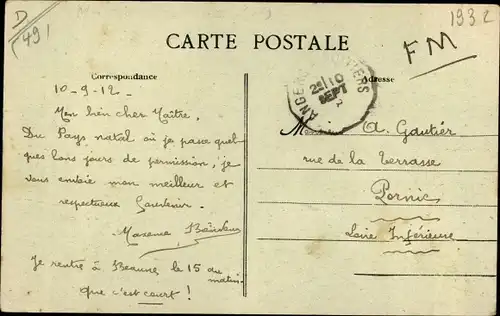 D
(491
1932
CARTE POSTALE
FM
Correspondance
Adresse
10-9-12_
2e/10
SEPT
Mon bien cher Maître,
Du Pays natal où je passe quel
ques bons jours de permission, je
vous envoie mon meilleur et
respectueux souvenir.
Maxence
Je rentre à Beaune le 15 au
matin.
Que c'est court !
Monsieur A. Gautier
rue de la Terrasse
Pornic
Loire Inférieure